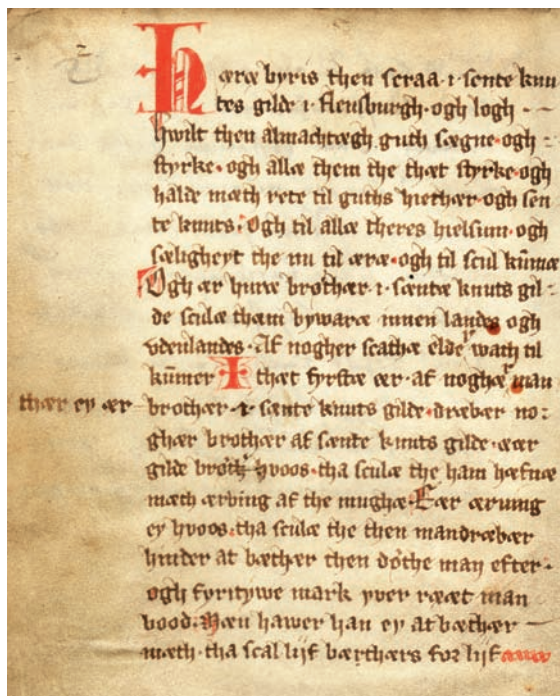 Hæræ byris then scraa · i · sente knu
tes gilde i · flensburgh · ogh logh
hwilt then almachtægh guth sægne · ogh
styrke · ogh allæ them the thæt styrke · ogh
halde mæth rete til guths hiethær · ogh sen
te knuts · Ogh til allæ theres hielsum · ogh
sæligheyt the nu til æræ · ogh til scul kūmæ
Ogh ær huræ brothær · i · sæntæ knuts gil
de sculæ thæm bywaræ innen landes ogh
vdenlandes · Af nogher scathæ elder wath til
kūmer I thæt fyrstæ ær · af nogher man
thær ey ær
brothær · i · sænte knuts gilde · dræbær no
ghær brothær af sænte knuts gilde · æær
gilde brøth hwos · tha sculæ the ham hæfnæ
mæth ærving af the mughæ · Ær æruing
ey hwos · tha sculæ the then mandræbær
hinder at bæthær then døthe man efter ·
ogh fyritywe mark yver rææt man
bood · Mæn hawer han ey at bæthær
mæth · tha scal lijf bærthærs for lijf